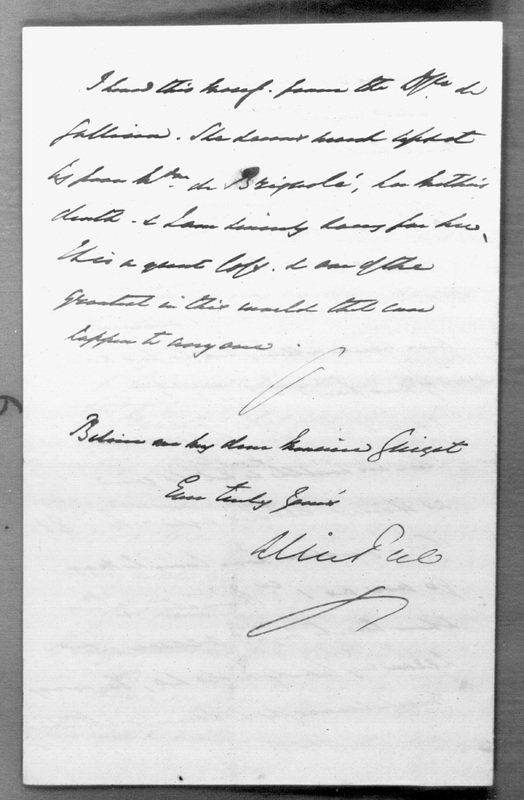 I heard this myself from the Dsse de
Galliera. She seems much upset
by poor Mme de Brignole', her Mother's
death - & I am sincerely sorry for her,
It is a great loss. & one of the
greatest in this world that can
happen to any one.
Believe me my dear Monsieur Guizot
Ever truly Yours